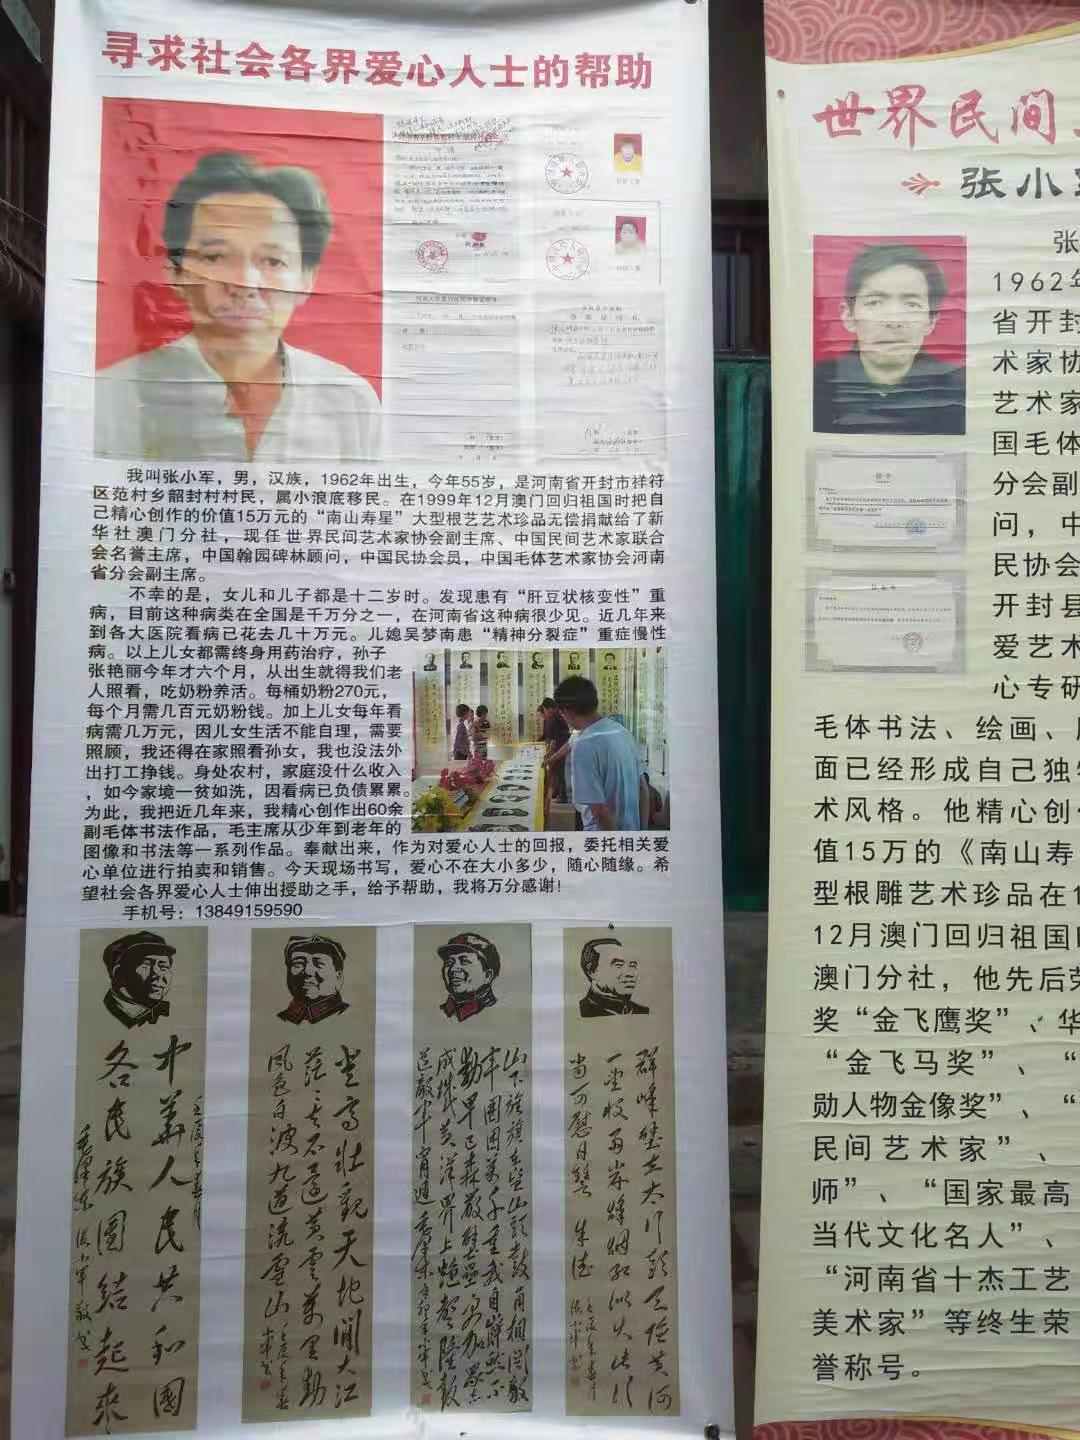 寻求社会各界爱心人士的帮助
我叫张小军，男，汉族，1962年出生，今年55岁，是河南省开封市祥符
区范村乡韶封村村民，属小浪底移民。在1999年12月澳门回归祖国时把自
己精心创作的价值15万元的“南山寿星”大型根艺艺术珍品无偿捐献给了新
华社澳门分社，现任世界民间艺术家协会副主席、中国民间艺术家联合
会名誉主席，中国翰园碑林顾问，中国民协会员，中国毛体艺术家协会河南
省分会副主席。
不幸的是，女儿和儿子都是十二岁时。发现患有“肝豆状核变性”重
病，目前这种病类在全国是千万分之一，在河南省这种病很少见。近几年来
到各大医院看病已花去几十万元。儿媳吴梦南患“精神分裂症”重症慢性
病。以上儿女都需终身用药治疗，孙子
张艳丽今年才六个月，从出生就得我们老
人照看，吃奶粉养活。每桶奶粉270元，
每个月需几百元奶粉钱。加上儿女每年看
病需几万元，因儿女生活不能自理，需要
照顾，我还得在家照看孙女，我也没法外
出打工挣钱。身处农村，家庭没什么收入
，如今家境一贫如洗，因看病已负债累累。
为此，我把近几年来，我精心创作出60余
副毛体书法作品，毛主席从少年到老年的
图像和书法等一系列作品。奉献出来，作为对爱心人士的回报，委托相关爱
心单位进行拍卖和销售。今天现场书写，爱心不在大小多少，随心随缘。希
望社会各界爱心人士伸出授助之手，给予帮助，我将万分感谢！
手机号：13849159590
中华人民共和国
各民族团结起来
登高壮观天地间大江
茫茫去不还黄云万里动
风色白波九道流雪山
山下旌旗在望山头鼓角相闻敌
军围困万千重我自岿然不
动早已森严壁垒更加众志
成城黄洋界上炮声隆报
道敌军宵遁毛泽东
群峰壁立太行头天险黄河
一望收两岸烽烟红似火此行
当可慰同仇 朱德
世界民间
张小
张
1962年
省开封
术家协
艺术家
国毛体
分会副
问，中
民协会
开封县
爱艺术
心专研
毛体书法、绘画、
面已经形成自己独特
术风格。他精心创
值15万的《南山寿
型根雕艺术珍品在1
12月澳门回归祖国
澳门分社，他先后荣
奖“金飞鹰奖”、华
“金飞马奖”、“
勋人物金像奖”、“
民间艺术家”、
师”、“国家最高
当代文化名人”、
“河南省十杰工艺
美术家”等终生荣
誉称号。